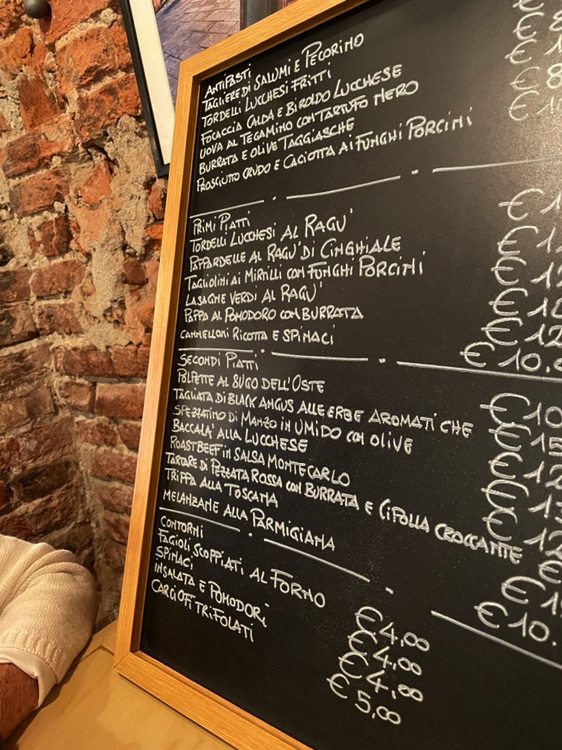 ANTIPASTI
TAGLIERE DI SALUMI E PECORINO
TORDELLI LUCCHESI FRITTI
FOCACCIA CALDA E BIROLDO LUCCHESE
UOVA AL TEGAMINO CON TARTUFO NERO
BURRATA E OLIVE TAGGIASCHE
PROSCIUTTO CRUDO E CACIOTTA AI FUNGHI PORCINI
PRIMI PIATTI
TORDELLI LUCCHESI AL RAGU'
PAPPARDELLE AL RAGU' DI CINGHIALE
TAGLIOLINI AI MIRTILLI CON FUNGHI PORCINI
LASAGNE VERDI AL RAGU'
PAPPA AL POMODORO CON BURRATA
CANNELLONI RICOTTA E SPINACI € 10.0
SECONDI PIATTI
POLPETTE AL SUGO DELL'OSTE € 10
TAGLIATA DI BLACK ANGUS ALLE ERBE AROMATICHE € 15
SPEZZATINO DI MANZO IN UMIDO CON OLIVE € 12
BACCALA' ALLA LUCCHESE
ROASTBEEF IN SALSA MONTECARLO
TARTARE DI PEZZATA ROSSA CON BURRATA E CIPOLLA CROCCANTE
TRIPPA ALLA TOSCANA
MELANZANE ALLA PARMIGIANA € 10.
CONTORNI
FAGIOLI SCOPPIATI AL FORNO € 4,00
SPINACI € 4,00
INSALATA E POMODORI € 4,00
CARCIOFI TRIFOLATI € 5,00